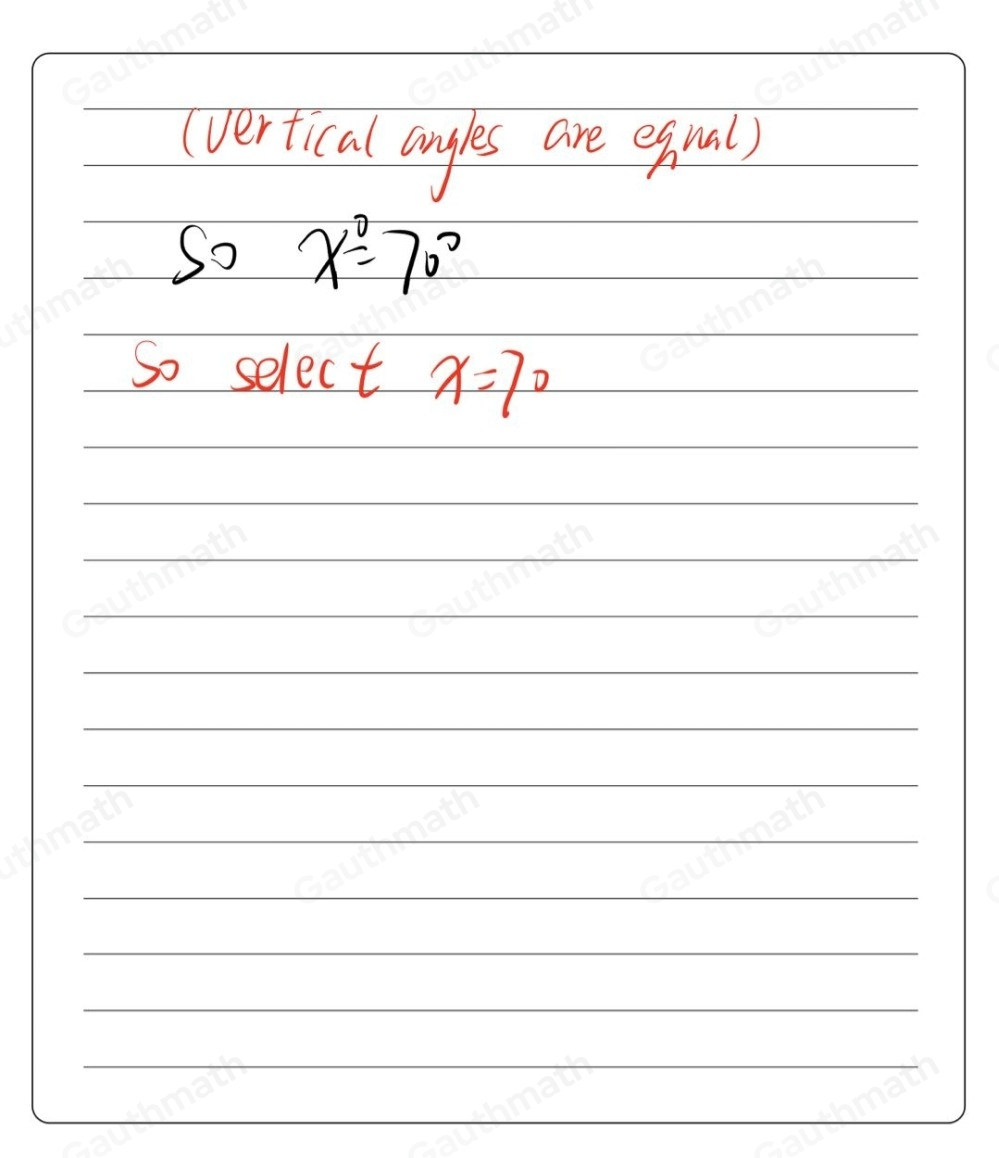 (vertical angles are equal)
So x°=70°
So select x=70